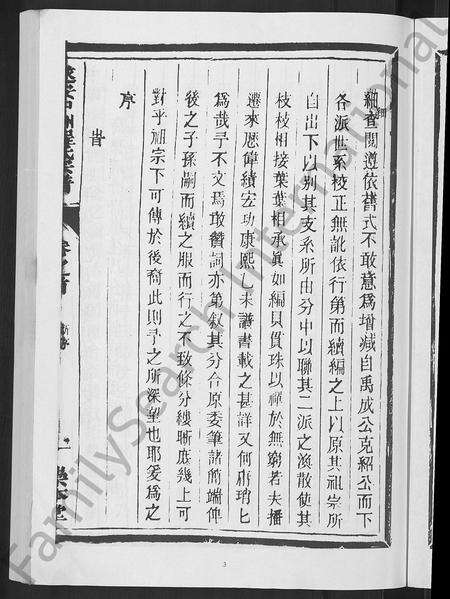 細查閱遵依舊式不敢意為增減自禹成公克紹公而下
各派世系校正無訛依行第而續編之上以原其祖宗所
自出下以別其支系所由分中以聯其二派之渙散使其
枝枝相接葉葉相承眞如編貝貫珠以禪於無窮若夫播
遷來歷偉績宏功康熙乙未譜書載之甚詳又何庸瑣匕
為哉予不文焉敢贊詞亦第叙其分合原委筆諸簡端俾
後之子孫嗣而續之服而行之不致條分縷晰庶幾上可
對乎祖宗下可傳於後裔此則予之所深望也耶爰為之
序
旹
細
卷之首
二
堂
3
FamilySearch International